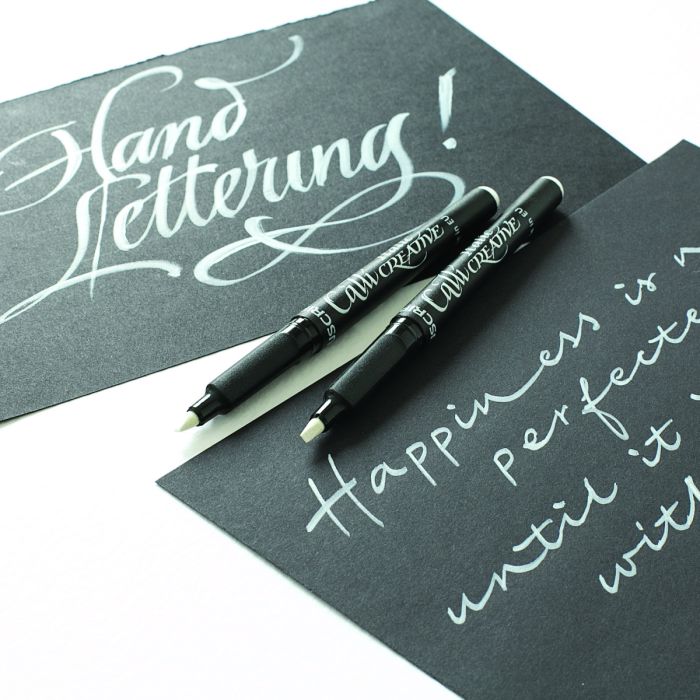 Hand
Lettering!
CalliCREATIVE
in EU
CalliCREATIVE
in EU
Happiness is
perfecte
until it
with